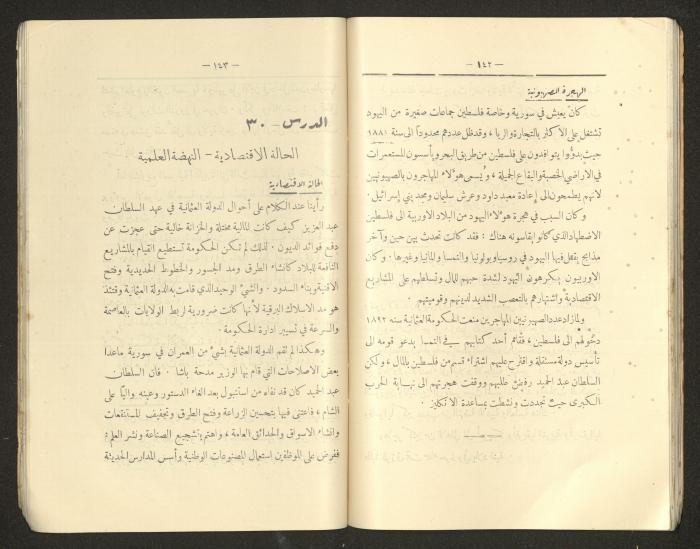 — ١٤٢ —
الهجرة الصهيونية
كان يعيش في سورية وخاصة فلسطين جماعات صغيرة من اليهود
تشتغل على الاكثر بالتجارة والربا ، وقد ظل عددهم محدوداً الى سنة ١٨٨١
حيث بدؤوا يتوافدون على فلسطين من طريق البحر ويأسسون المستعمرات
في الاراضي الخصبة والبقاع الجميلة ، ويُسمى هؤلاء المهاجرون بالصهيونيين
لانهم يطمحون الى إعادة معبد داود وعرش سليمان ومجد بني إسرائيل .
وكان السبب في هجرة هؤلاء اليهود من البلاد الاوربية الى فلسطين
الاضطهاد الذي كانوا يقاسونه هناك : فقد كانت تحدث بين حين وآخر
مذابح يقتل فيها اليهود في روسيا وبولونيا والنمسا والمانيا وغيرها . وكان
الاوربيون يكرهون اليهود لشدة حبهم للمال وتسلطهم على المشاريع
الاقتصادية واشتهارهم بالتعصب الشديد لدينهم وقوميتهم .
ولما زاد عدد الصهيونيين المهاجرين منعت الحكومة العثمانية سنه ١٨٩٢
دخولهم الى فلسطين ، فقام أحد كتابهم في النمسا يدعو قومه الى
تأسيس دولة مستقلة واقترح عليهم اشتراء قسم من فلسطين بالمال ، ولكن
السلطان عبد الحميد رفض طلبهم ووقفت هجرتهم الى نهاية الحرب
الكبرى حيث تجددت ونشطت بمساعدة الانكليز .
— ١٤٣ —
الدرس - ٣٠
الحالة الاقتصادية - النهضة العلمية
الحالة الاقتصادية
رأينا عند الكلام على أحوال الدولة العثمانية في عهد السلطان
عبد العزيز كيف كانت المالية مختلة والخزانة خالية حتى عجزت عن
دفع فوائد الديون . لذلك لم تكن الحكومة تستطيع القيام بالمشاريع
النافعة للبلاد كانشاء الطرق ومد الجسور والخطوط الحديدية وفتح
الاقنية وبناء السدود . والشيء الوحيد الذي قامت به الدولة العثمانية وقتئذ
هو مد الاسلاك البرقية لأنها كانت ضرورية لربط الولايات بالعاصمة
والسرعة في تسيير ادارة الحكومة .
وهكذا لم تقم الدولة العثمانية بشيء من العمران في سورية ماعدا
بعض الاصلاحات التي قام بها الوزير مدحة باشا . فان السلطان
عبد الحميد كان قد نفاه من استنبول بعد الغاء الدستور وعينه والياً على
الشام ، فاعتنى فيها بتحسين الزراعة وفتح الطرق وتجفيف المستنقعات
وانشاء الاسواق والحدائق العامة ، واهتم بتشجيع الصناعة ونشر العلم :
ففرض على الموظفين استعمال المصنوعات الوطنية وأسس المدارس الحديثة